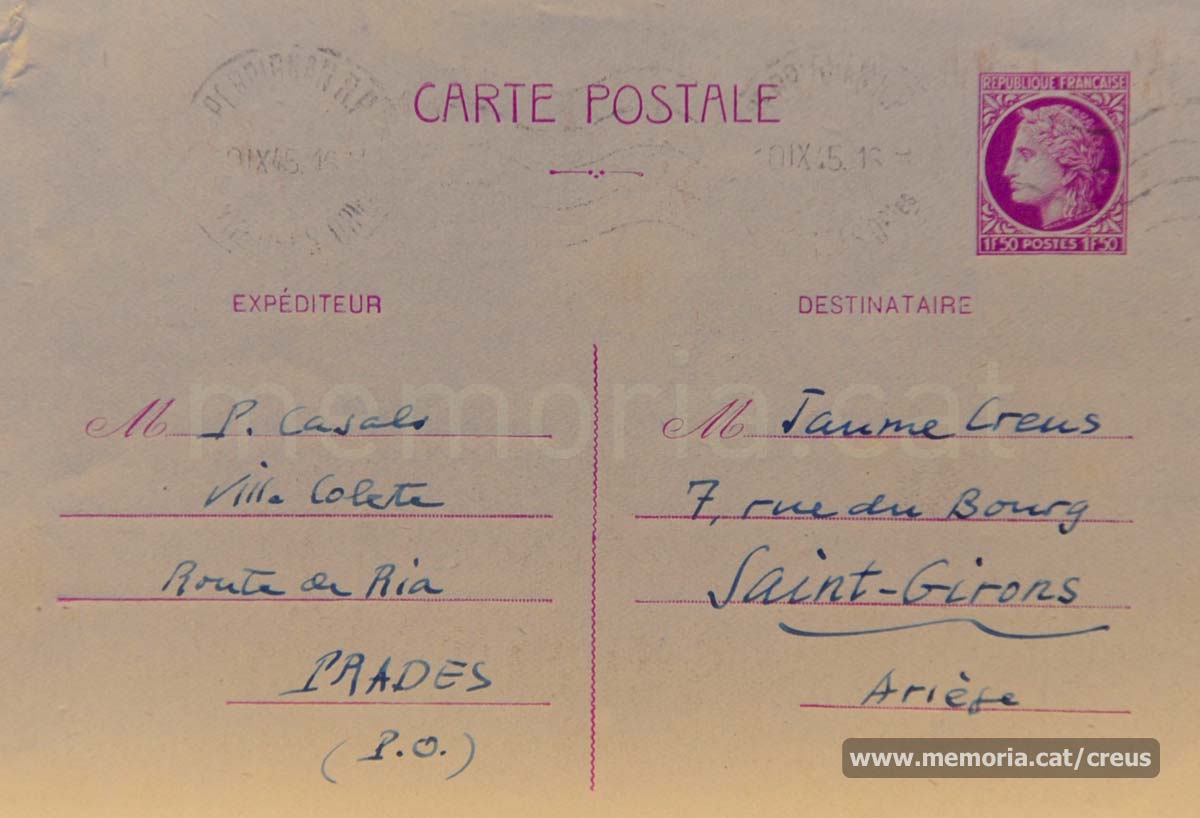 CARTE POSTALE
RÉPUBLIQUE FRANÇAISE
1F50 POSTES 1F50
EXPÉDITEUR
M P. Casals
Villa Colette
Route de Ria
PRADES
(P.O.)
DESTINATAIRE
M Jaume Creus
7, rue du Bourg
Saint-Girons
Ariège
memoria.cat
www.memoria.cat/creus